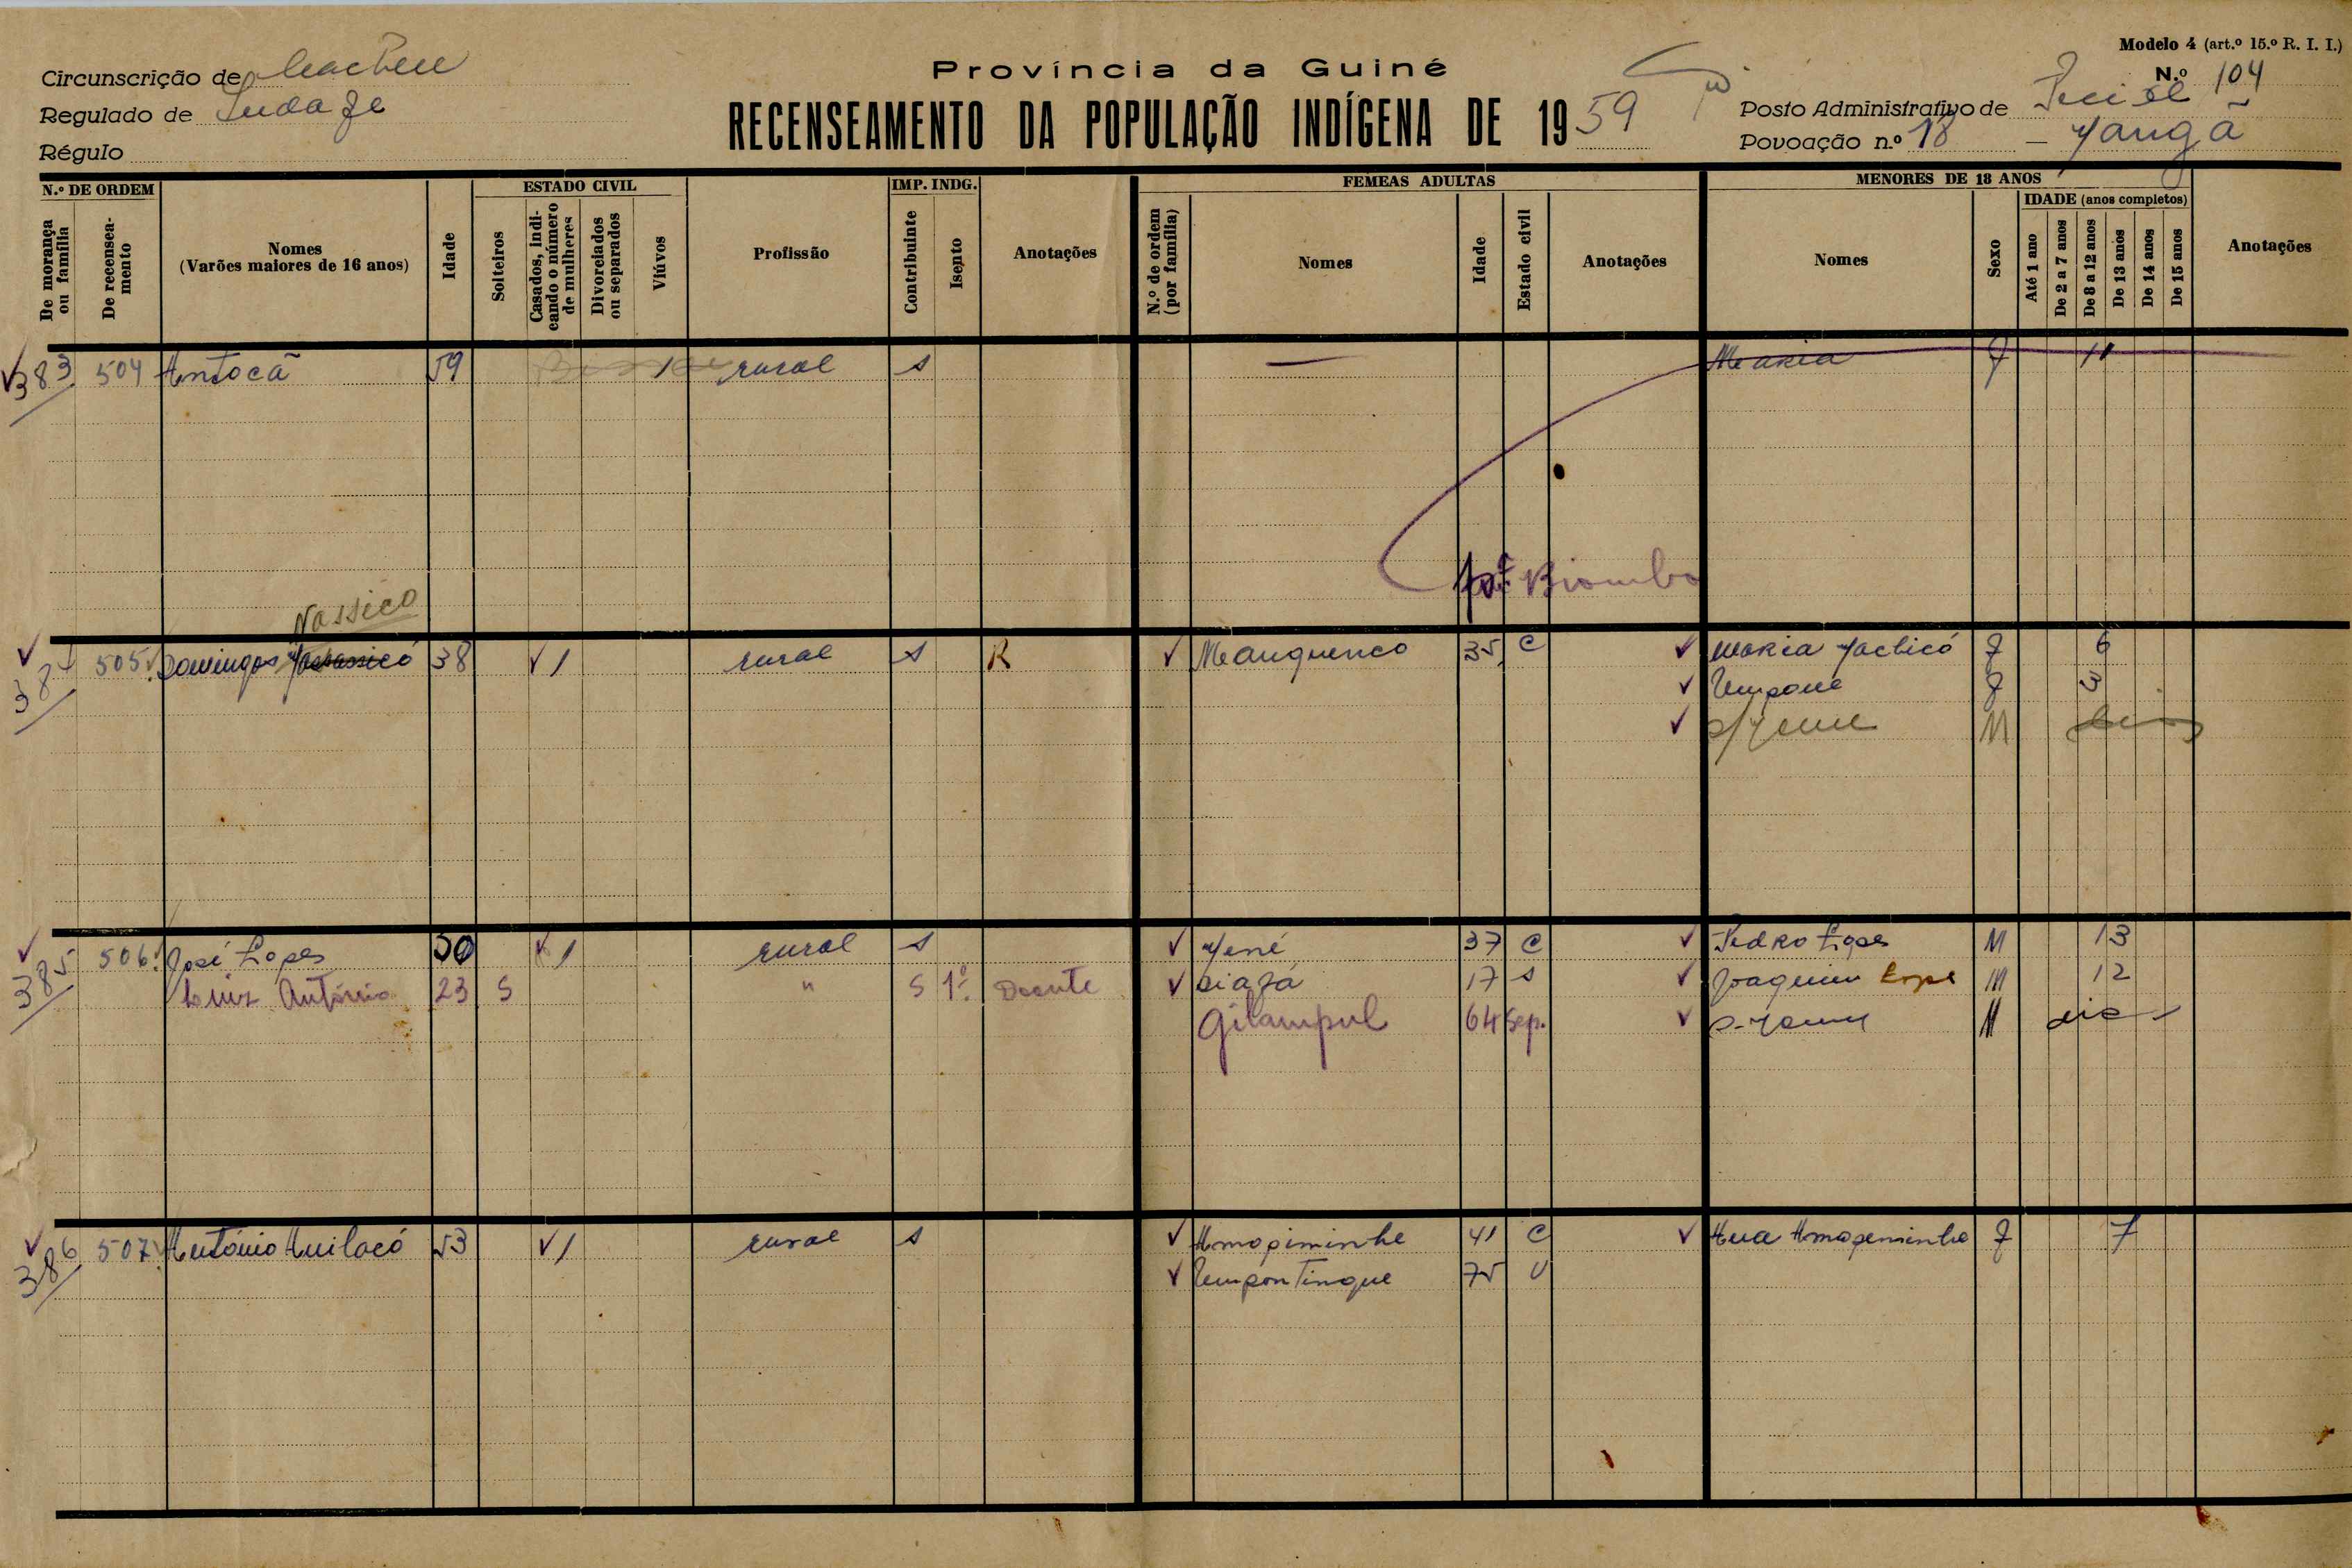 Modelo 4 (art.º 15.º R. I. I.)
Província da Guiné
N.º 104
Circunscrição de
Regulado de
Régulo
RECENSEAMENTO DA POPULAÇÃO INDÍGENA DE 1959
Posto Administrativo de
Povoação n.º 18 —
N.º DE ORDEM
De morança ou família
De recenseamento
Nomes
(Varões maiores de 16 anos)
Idade
ESTADO CIVIL
Solteiros
Casados, indicando o número de mulheres
Divorciados ou separados
Viúvos
Profissão
IMP. INDG.
Contribuinte
Isento
Anotações
FEMEAS ADULTAS
N.º de ordem (por família)
Nomes
Idade
Estado civil
Anotações
MENORES DE 18 ANOS
Nomes
Sexo
IDADE (anos completos)
Até 1 ano
De 2 a 7 anos
De 8 a 12 anos
De 13 anos
De 14 anos
De 15 anos
Anotações
383 504 Antocã 59 1 rural s — Maria F 11
Biombo
Nassico
384 505 Domingos 38 1 rural s R Manquenco 35 C Maria F 6
F 3
M
385 506 José Lopes 50 1 rural s 37 C Pedro Lopes M 13
Luiz António 23 S " S 1º. Doente 17 s Joaquim Lopes M 12
Gilampul 64 Sep. M
386 507 António 53 1 rural s Amopiminhe 41 C F 7
75 V